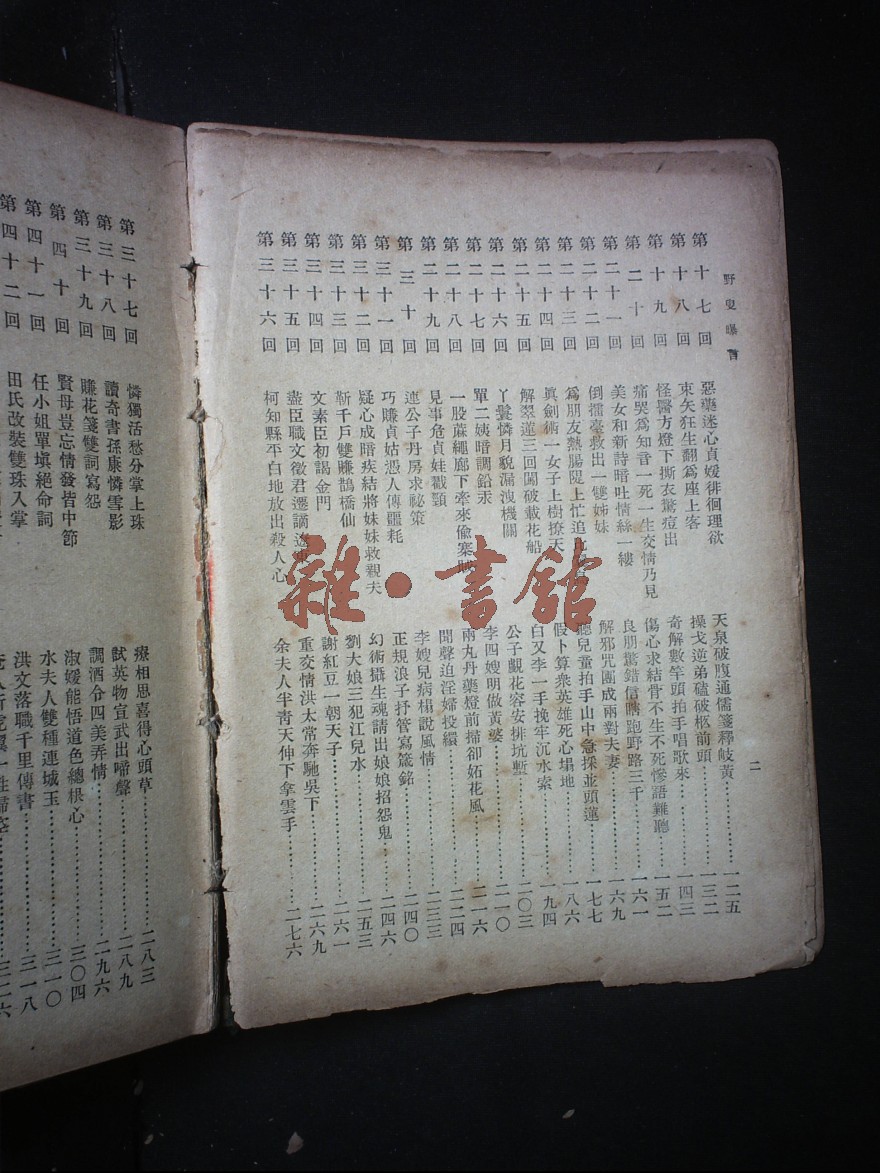 野叟曝言
二
第十七回 惡藥迷心貞媛徘徊理欲 天泉破腹通儒箋釋岐黃 一二五
第十八回 束矢狂生翻爲座上客 操戈逆弟磕破柩前頭 一三二
第十九回 怪醫方燈下撕衣驚痘出 奇解數竿頭拍手唱歌來 一四三
第二十回 痛哭爲知音一死一生交情乃見 傷心求結骨不生不死慘語難聽 一五二
第二十一回 美女和新詩暗吐情絲一縷 良朋驚錯信瞞跑野路三千 一六一
第二十二回 倒擂臺救出一雙姊妹 解邪咒團成兩對夫妻 一六九
第二十三回 爲朋友熱腸隄上忙追 聽兒童拍手山中急採並頭蓮 一七七
第二十四回 眞劍術一女子上樹撩天 假卜算衆英雄死心塌地 一八六
第二十五回 解翠蓮三回闖破載花船 白又李一手挽牢沉水索 一九四
第二十六回 丫鬟憐月貌漏洩機關 公子覷花容安排坑塹 二〇三
第二十七回 單二姨暗調鉛汞 李四嫂明做黃婆 二一〇
第二十八回 一股蔴繩廊下牽來偷寨 兩丸丹藥燈前掃卻妬花風 二一六
第二十九回 見事危貞娃戳顙 聞聲迫淫婦投繯 二二四
第三十回 連公子丹房求祕策 李嫂兒病榻說風情 二三三
第三十一回 巧賺貞姑憑人傳噩耗 正規浪子抒管寫箴銘 二四〇
第三十二回 疑心成暗疾結將妹妹救親夫 幻術攝生魂請出娘娘招怨鬼 二四六
第三十三回 靳千戶雙賺鵲橋仙 劉大娘三犯江兒水 二五三
第三十四回 文素臣初謁金門 謝紅豆一朝天子 二六一
第三十五回 盡臣職文徵君遷謫遼 重交情洪太常奔馳吳下 二六九
第三十六回 柯知縣平白地放出殺人心 余夫人半青天伸下拿雲手 二七六
第三十七回 憐獨活愁分掌上珠 療相思喜得心頭草 二八三
第三十八回 讀奇書孫康憐雪影 試英物宣武出啼聲 二八九
第三十九回 賺花箋雙詞寫怨 調酒令四美弄情 二九六
第四十回 賢母豈忘情發皆中節 淑媛能悟道色總根心 三〇四
第四十一回 任小姐單塡絕命詞 水夫人雙種連城玉 三一〇
第四十二回 田氏改裝雙珠入掌 洪文落職千里傳書 三一八
三二六
雜·書館